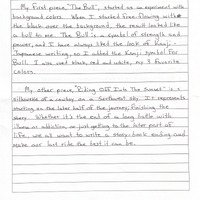 My first piece, "The Bull", started as an experiment with
background colors. When I started free-flowing with
the black over the background, the result looked like
a bull to me. The Bull is a symbol of strength and
power, and I have always liked the look of Kanji -
Japanese writing, so I added the Kanji symbol for
Bull. I also used black, red and white, my 3 favorite
colors.
My other piece, "Riding Off Into The Sunset" is a
silhouette of a cowboy on a Southwest sky. It represents
starting on the later half of the journey, finishing the
story. Whether it's the end of a long battle with
illness or addiction, or just getting to the later part of
life, we all want to write a story-book ending and
make our last ride the best it can be.